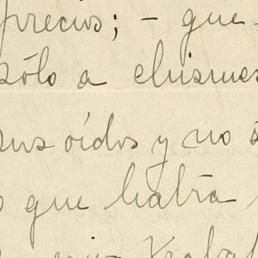 precios; - que
sólo a chismes
sus oídos y no s
que habrá